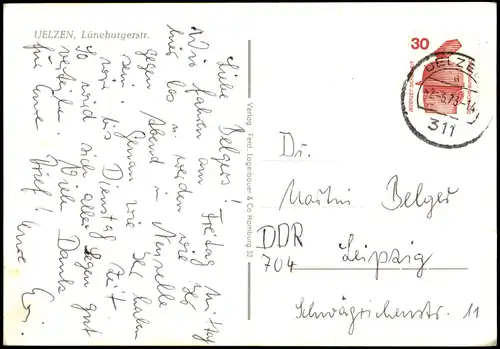 UELZEN, Lüneburgerstr.
Liebe Belgers!
Wir fahren am Freitag mittag
hier los u. werden wie Ihr
gegen Abend in Neuzelle
sein. Genau wie Ihr haben
wir bis Dienstag Zeit
So wird sich alles legen gut
verteilen. Viele Dank
für Eure Brief! Eure
Verlag Ferd. Lagerbauer & Co Hamburg 33
30
UELZEN
311
Dr.
Martin Belger
DDR
704 Leipzig
Schwägrichenstr. 11